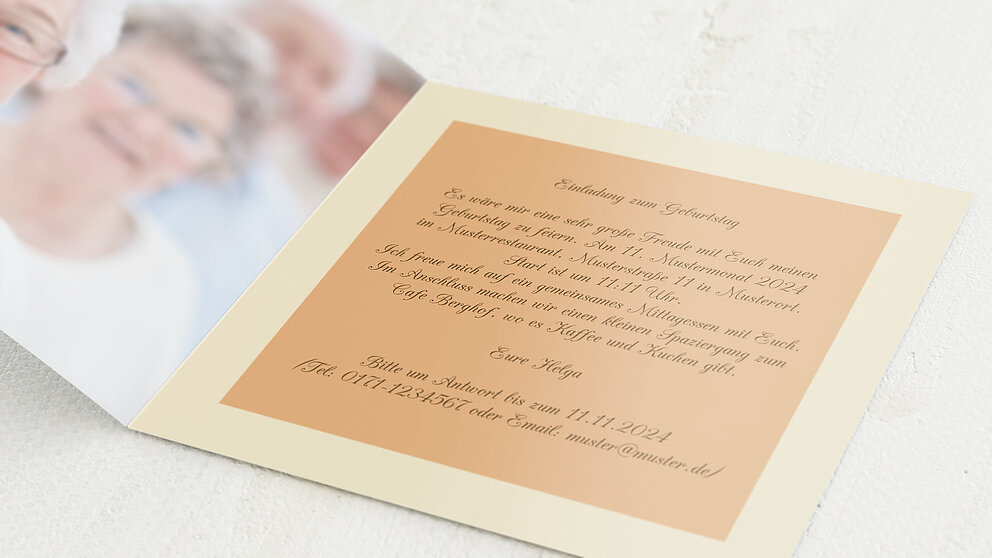 Einladung zum Geburtstag
Es wäre mir eine sehr große Freude mit Euch meinen
Geburtstag zu feiern. Am 11. Mustermonat 2024
im Musterrestaurant, Musterstraße 11 in Musterort.
Start ist um 11:11 Uhr.
Ich freue mich auf ein gemeinsames Mittagessen mit Euch.
Im Anschluss machen wir einen kleinen Spaziergang zum
Café Berghof, wo es Kaffee und Kuchen gibt.
Eure Helga
Bitte um Antwort bis zum 11.11.2024
(Tel: 0171-1234567 oder Email: muster@muster.de)